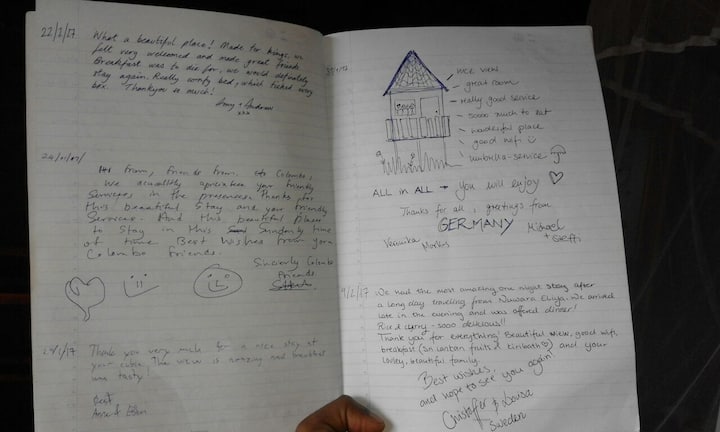 22/2/17
What a beautiful place! Made for kings, we
felt very welcomed and made great friends.
Breakfast was to die for, we would definitely
stay again. Really comfy bed, which ticked every
box. Thankyou so much!
+ Andrew
xxx
from, friends from Colombo,
We your friendly
Services in the thanks for
this beautiful Stay and your friendly
Service. And this beautiful places
to Stay in this time
of time Best Wishes from your
Colombo friends.
Sincerly Colombo
friends
Thank you very much for a nice stay at
your The view is amazing and breakfast
was tasty
Best
nice view
great room
really good service
soooo much to eat
wonderful place
good wifi
umbrella-service
ALL in ALL → you will enjoy ♡
Thanks for all, greetings from
GERMANY
Veronika
Markus
Michael
+
Steffi
9/2/17 We had the most amazing one night stay after
a long day traveling from Nuwara Eliya. We arrived
late in the evening and was offered dinner!
Rice & curry - sooo delicious!!
Thank you for everything! Beautiful view, good wifi,
breakfast (Sri Lankan fruits & kiribath ♡) and your
lovley, beautiful family.
Best wishes,
and hope to see you again!
Cristoffer & Lovisa
Sweden